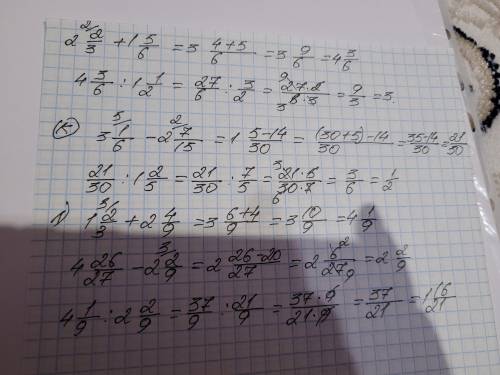 2 2/3 + 1 5/6 = 3 (4+5)/6 = 3 9/6 = 4 3/6
4 3/6 : 1 1/2 = 27/6 : 3/2 = 27·2/6·3 = 9/3 = 3.
к) 3 1/6 - 2 7/15 = 1 (5-14)/30 = ((30+5)-14)/30 = (35-14)/30 = 21/30
21/30 : 1 2/5 = 21/30 : 7/5 = 21·5/30·7 = 3/6 = 1/2
л) 1 2/3 + 2 4/9 = 3 (6+4)/9 = 3 10/9 = 4 1/9
4 26/27 - 2 2/9 = 2 (26-20)/27 = 2 6/27 = 2 2/9
4 1/9 : 2 2/9 = 37/9 : 21/9 = 37·9/21·9 = 37/21 = 1 16/21